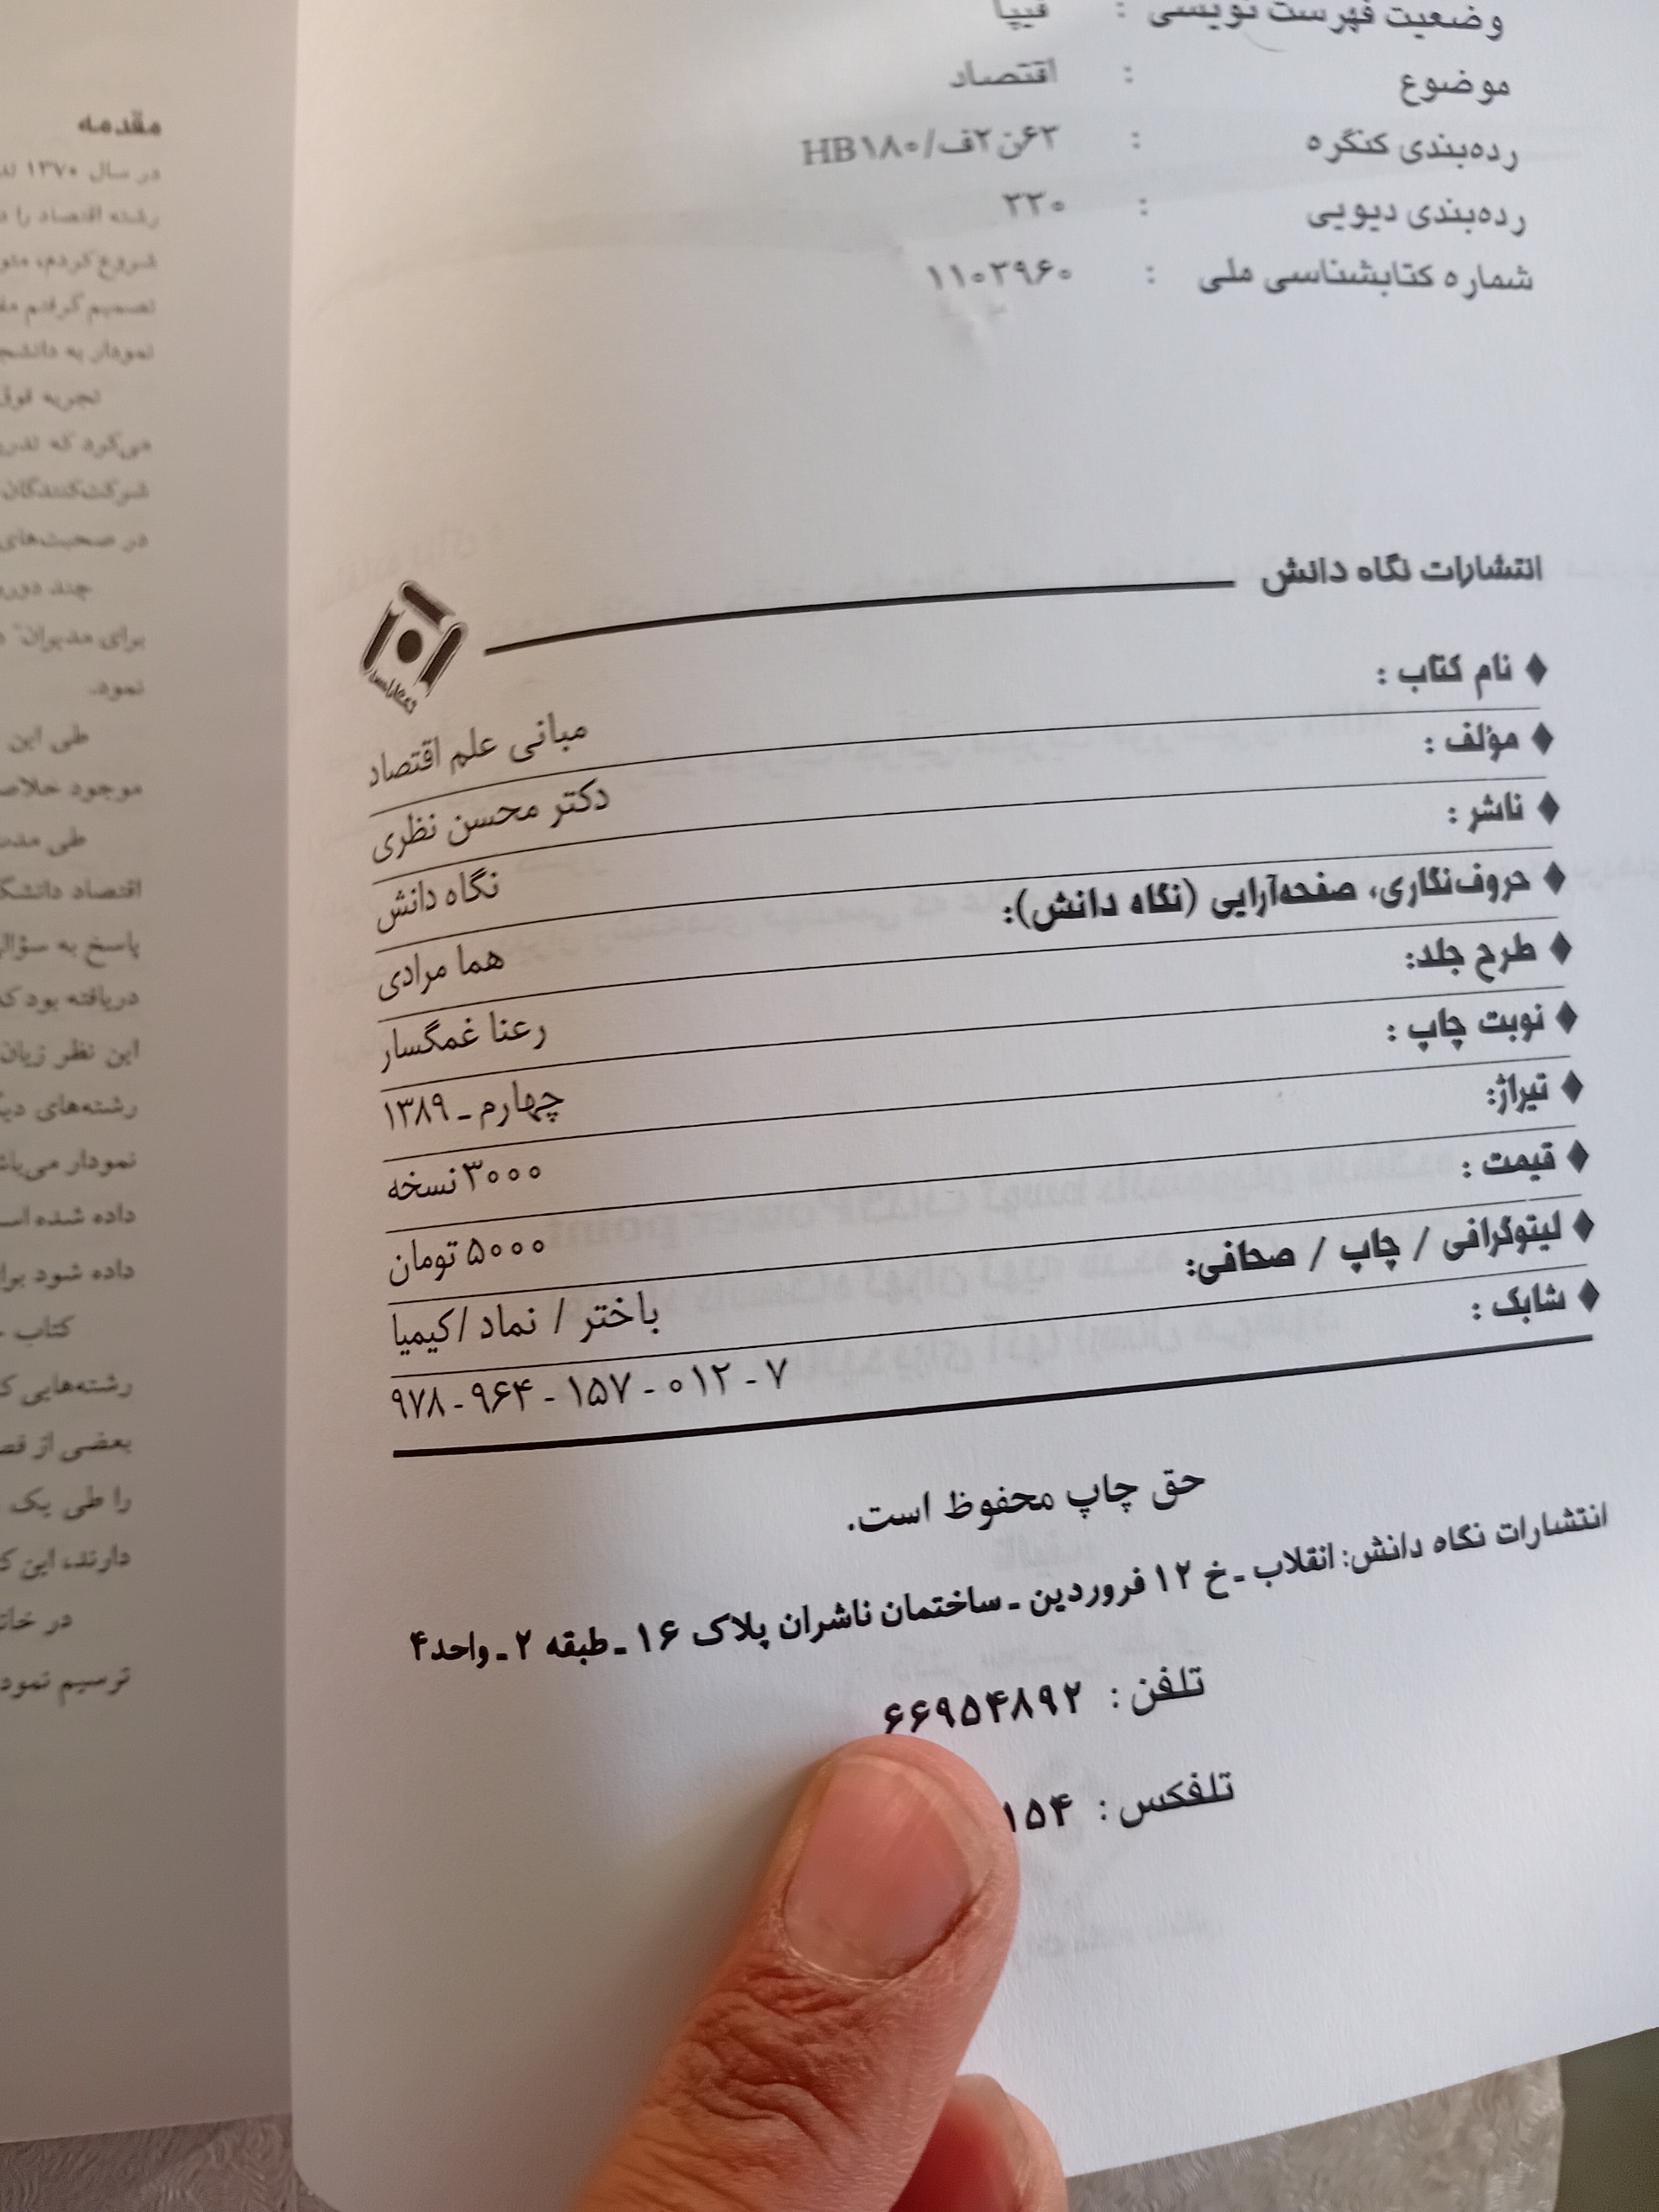 وضعیت فهرست نویسی : فیپا
موضوع : اقتصاد
رده‌بندی کنگره : ۶۳ن۲ف/HB۱۸۰
رده‌بندی دیویی : ۳۳۰
شماره کتابشناسی ملی : ۱۱۰۳۹۶۰
انتشارات نگاه دانش
♦ نام کتاب : مبانی علم اقتصاد
♦ مؤلف : دکتر محسن نظری
♦ ناشر : نگاه دانش
♦ حروف‌نگاری، صفحه‌آرایی (نگاه دانش): هما مرادی
♦ طرح جلد: رعنا غمگسار
♦ نوبت چاپ : چهارم ـ ۱۳۸۹
♦ تیراژ: ۳۰۰۰ نسخه
♦ قیمت : ۵۰۰۰ تومان
♦ لیتوگرافی / چاپ / صحافی: باختر / نماد /کیمیا
♦ شابک : ۹۷۸ - ۹۶۴ - ۱۵۷ - ۰۱۲ - ۷
حق چاپ محفوظ است.
انتشارات نگاه دانش: انقلاب ـ خ ۱۲ فروردین ـ ساختمان ناشران پلاک ۱۶ ـ طبقه ۲ ـ واحد۴
تلفن : ۶۶۹۵۴۸۹۲
تلفکس : ۱۵۴
مقدمه
در سال ۱۳۷۰
رشته اقتصاد را
شروع کردم،
تصمیم گرفتم
نمودار به
تجربه فوق
می‌کرد که
شرکت‌کنندگان
در صحبت‌های
چند دوره
برای مدیران"
نمود.
طی این
موجود
طی مدت
اقتصاد
پاسخ به
دریافته بود که
این نظر زیان
رشته‌های
نمودار
داده شده
داده شود
کتاب
رشته‌هایی
بعضی از
را طی یک
دارند، این
در
ترسیم